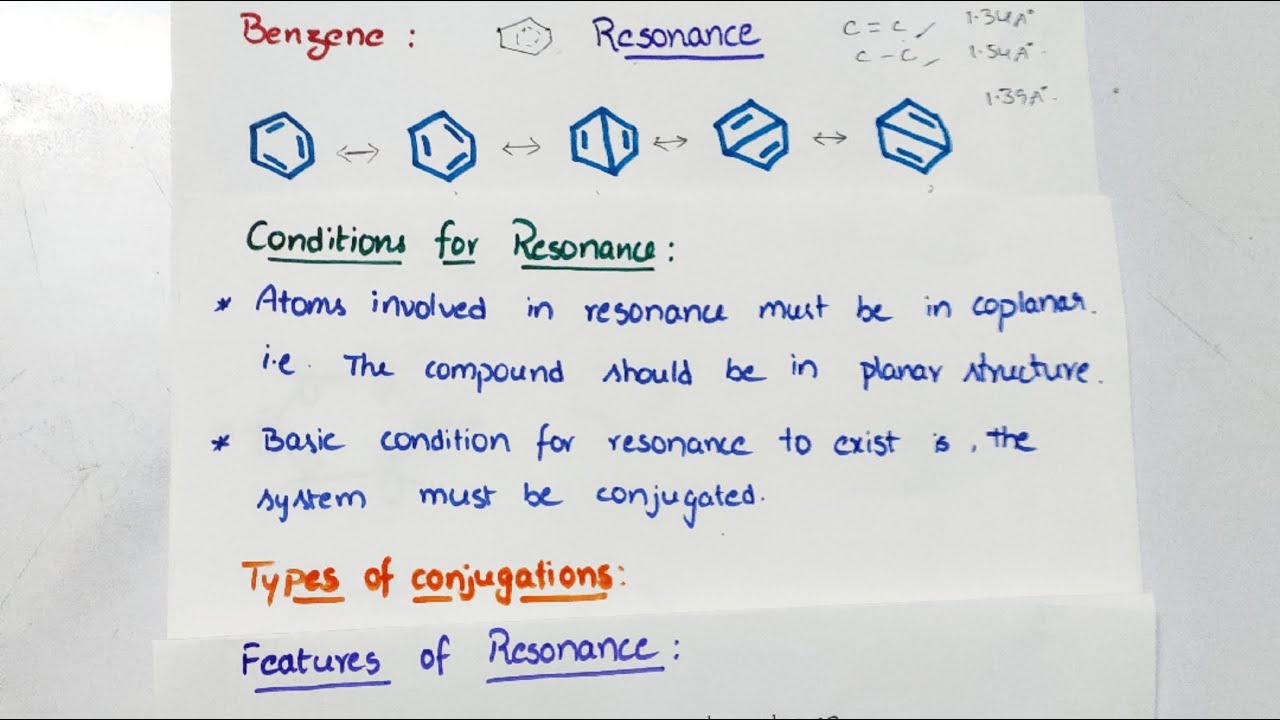 Benzene : Resonance C = C, 1.34A°
C - C, 1.54A°
1.39A°
Conditions for Resonance :
* Atoms involved in resonance must be in coplanar.
i.e. The compound should be in planar structure.
* Basic condition for resonance to exist is, the
system must be conjugated.
Types of conjugations:
Features of Resonance :